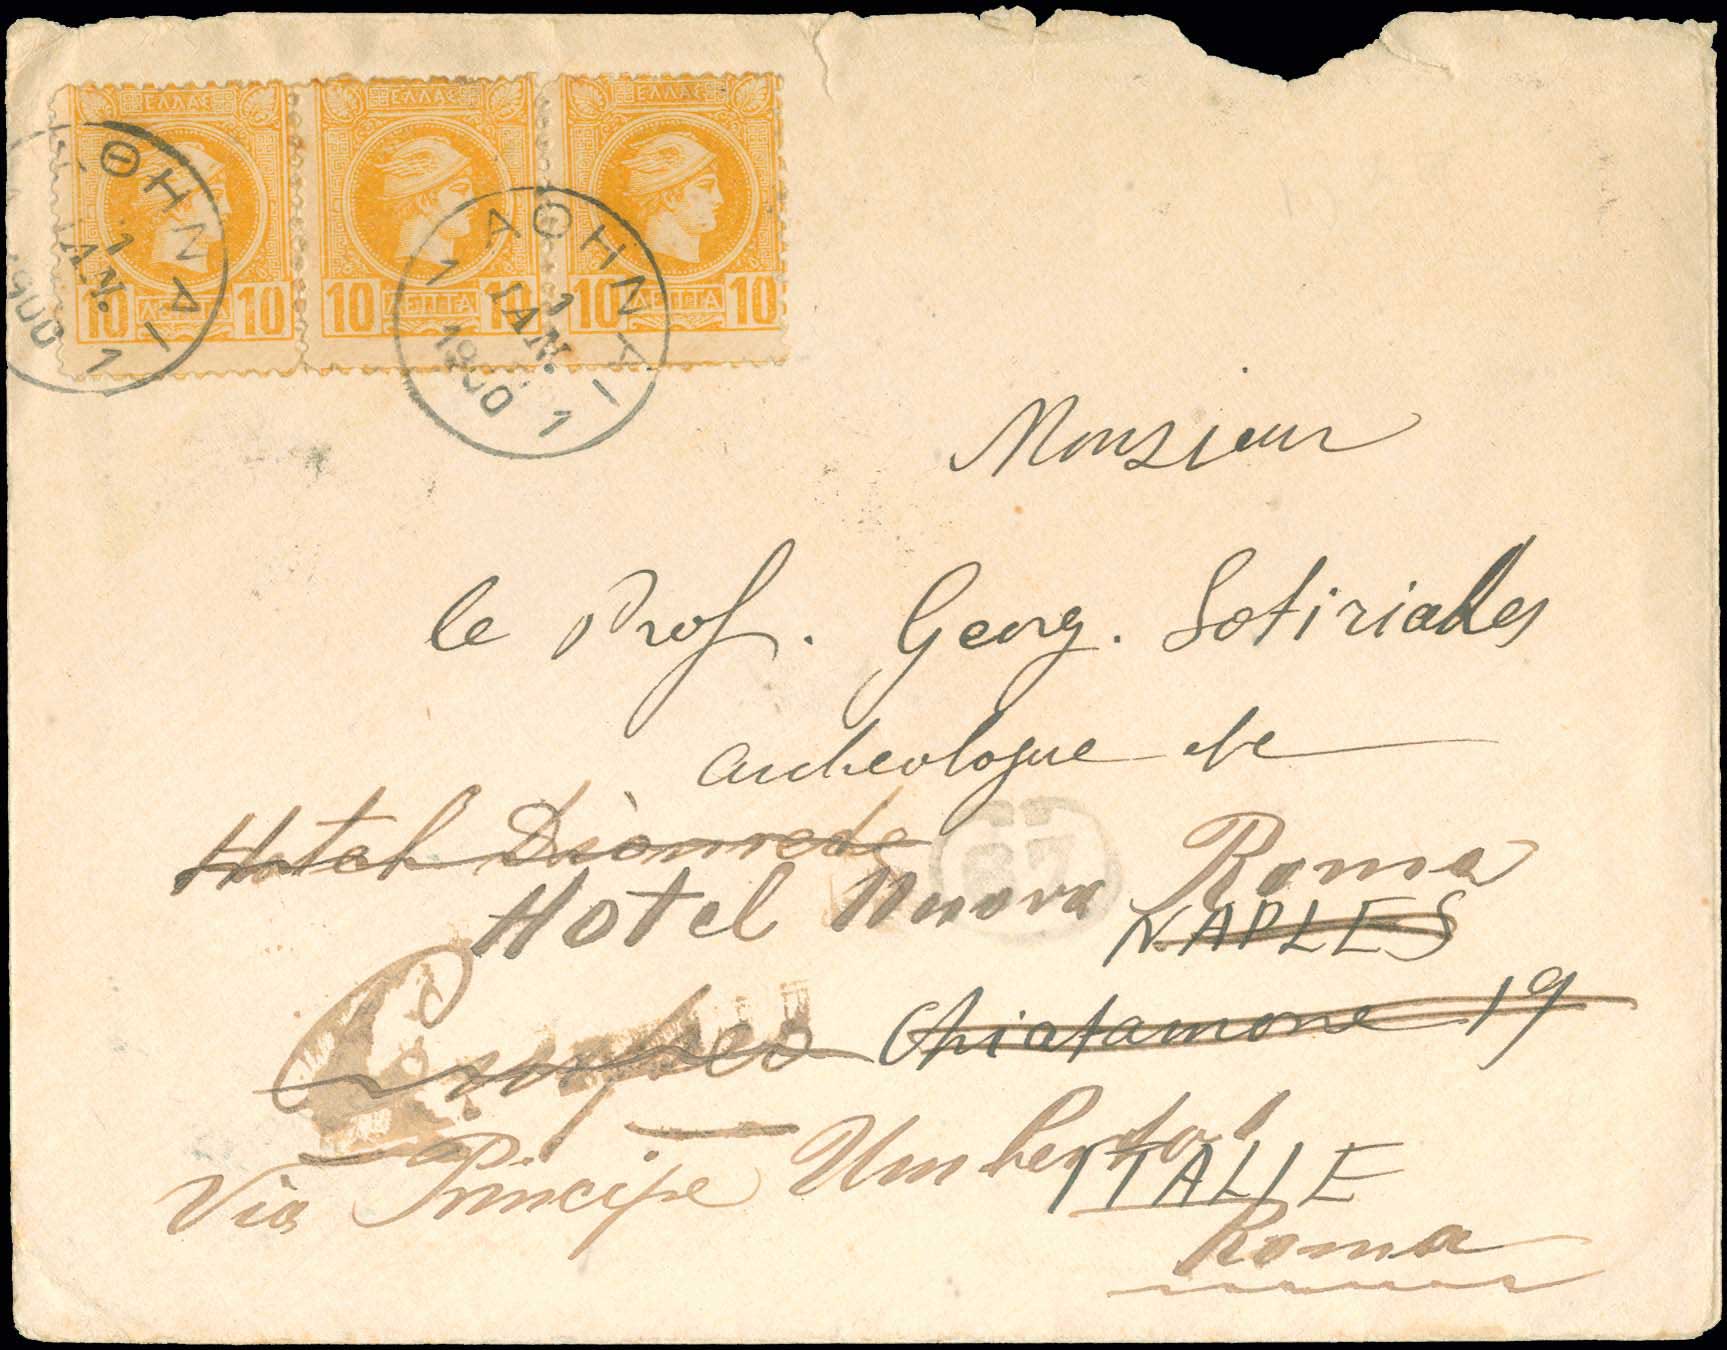 ΕΛΛΑΣ ΕΛΛΑΣ ΕΛΛΑΣ
10 ΛΕΠΤΑ 10 10 ΛΕΠΤΑ 10 10 ΛΕΠΤΑ 10
ΑΘΗΝΑΙ 1
1
ΙΑΝ.
1900
ΑΘΗΝΑΙ 1
1
ΙΑΝ.
1900
1
Monsieur
le Prof. Georg. Sotiriades
archeologue etc
Hotel Diomede
Roma
Hotel Nuova
NAPLES
Chiatamone 19
Via Principe Umberto
ITALIE
Roma